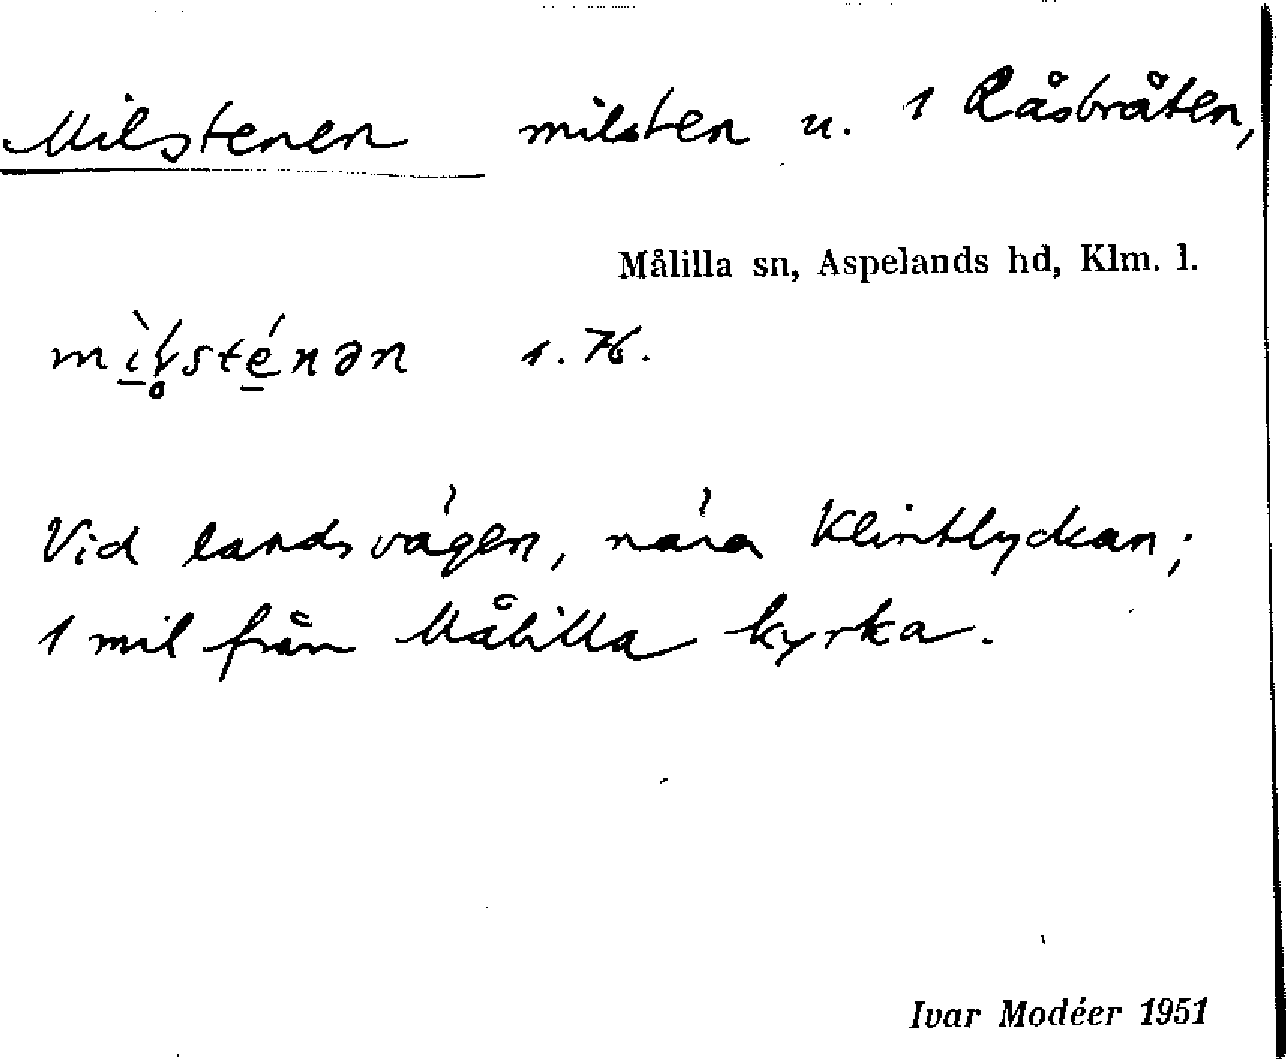 Milstenen milsten u. 1 Råsbråten,
Målilla sn, Aspelands hd, Klm. l.
1. 76.
Vid landsvägen, nära Klintlyckan;
1 mil från Målilla kyrka.
Ivar Modéer 1951